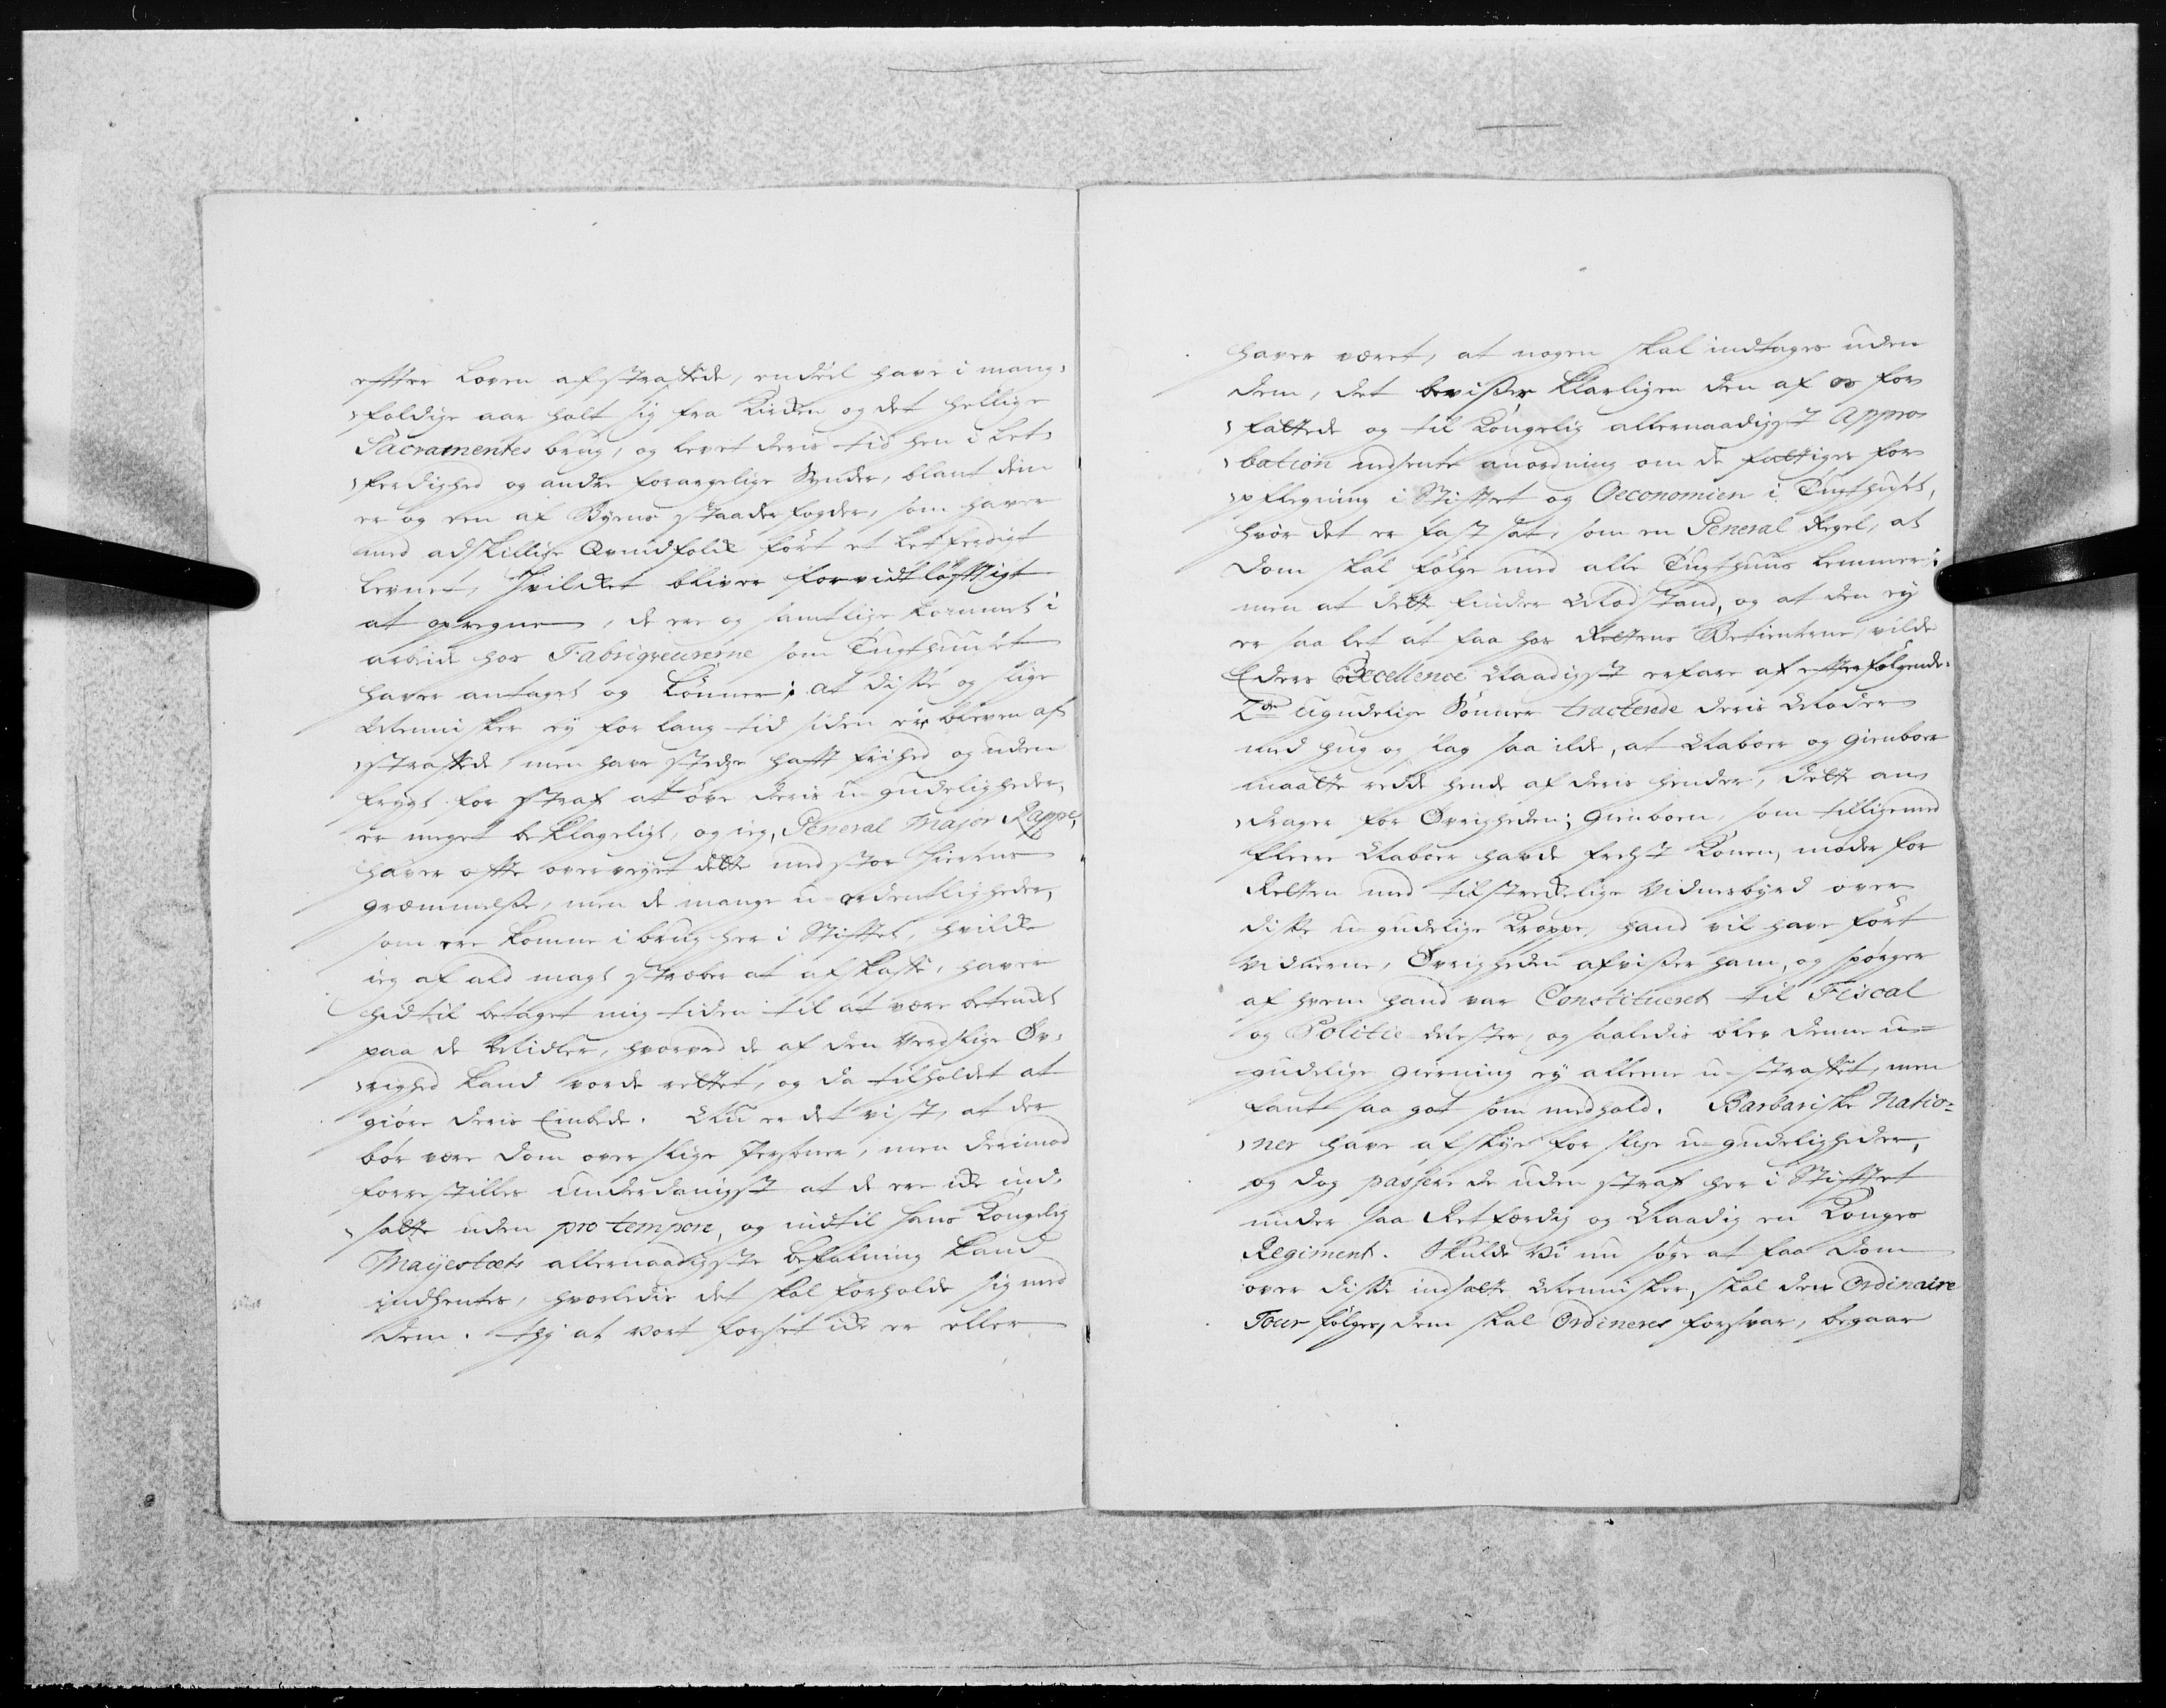 efter Loven afstraffede, endeel have i mang-
foldige aar holt sig fra Kirken og det hellige
Sacramentes brug, og levet deris tid hen i Let-
ferdighed og andre forargelige Synder, blant dem
er og een af Byens staader fogder, som haver
med adskillige Qvindfolk ført et letferdigt
Levnet, Hvilcket bliver forvidtløfftigt
at opregne, de ere og samtlige kommet i
arbeide hos Fabriqveurerne som Tugthuuset
haver antaget og Lønner; at disse og slige
Mennisker ej for lang tid siden ere bleven af-
straffede, men have stedse hafft frihed og uden
frygt for straf at øve deris u-gudeligheder,
er meget beklageligt, og ieg, General Major Rappe,
haver offte overveyet dette med stor Hiertens
græmmelse, men de mange u-ordentligheder,
som ere komne i brug her i Stifftet, hvilcke
ieg af ald magt stræber at afskaffe, haver
hidtil betaget mig tiden til at være betenckt
paa de Midler, hvorved de af den Verdslige Øv-
righed kand vorde rettet, og da tilholdet at
giøre deris Embede. Nu er det vist, at der
bør være dom over slige Personer, men derimod
forrestilles underdanigst at de ere icke ind-
satte uden pro tempore, og indtil Hans Kongelig
Mayestæts allernaadigste Befalning kand
indhentes, hvorledis det skal forholde sig med
dem. thj at vort forset icke er eller
haver veret, at nogen skal indtages uden
dom, det beviser klarligen den af os for-
fattede og til Kongelig allernaadigst Appro-
bation nedsente anordning om de fattiges for-
pflegning i Stifftet og Oeconomien i Tugthuset,
hvor det er fast sat, som en General Regel, at
Dom skal følge med alle Tugthuus Lemmer;
men at dette finder Modstand, og at den ej
er saa let at faa hos Rettens Betienterne, vilde
Eders Excellence Naadigst erfare af efterfølgende:
2de Ugudelige Sønner tracterede deris Moder
med hug og slag saa ilde, at Naboer og gienboer
maatte redde hende af deris hender, dette an-
drager for Øvrigheden; Gienboen, som tilligemed
fleere Naboer havde frelst Konen, møder for
Retten med tilstreckelige Vidnesbyrd over
disse u-gudelige Kroppe, hand vil have ført
Vidnerne, Øvrigheden afviser ham, og spørger
af hvem hand var Constitueret til Fiscal
og Politie Mester, og saaledis blev denne u-
gudelige gierning ej alleene u-straffet, men
fant saa got som medhold. Barbariske Natio-
ner have afskye for slige u-gudeligheder,
og dog passere de uden straf her i Stifftet
under saa Retfærdig og Naadig en Konges
Regiment. Skulde Vi nu søge at faa Dom
over disse indsatte Mennisker, skal den Ordinaire
Tour følges, dem skal Ordineres forsvar, begaar